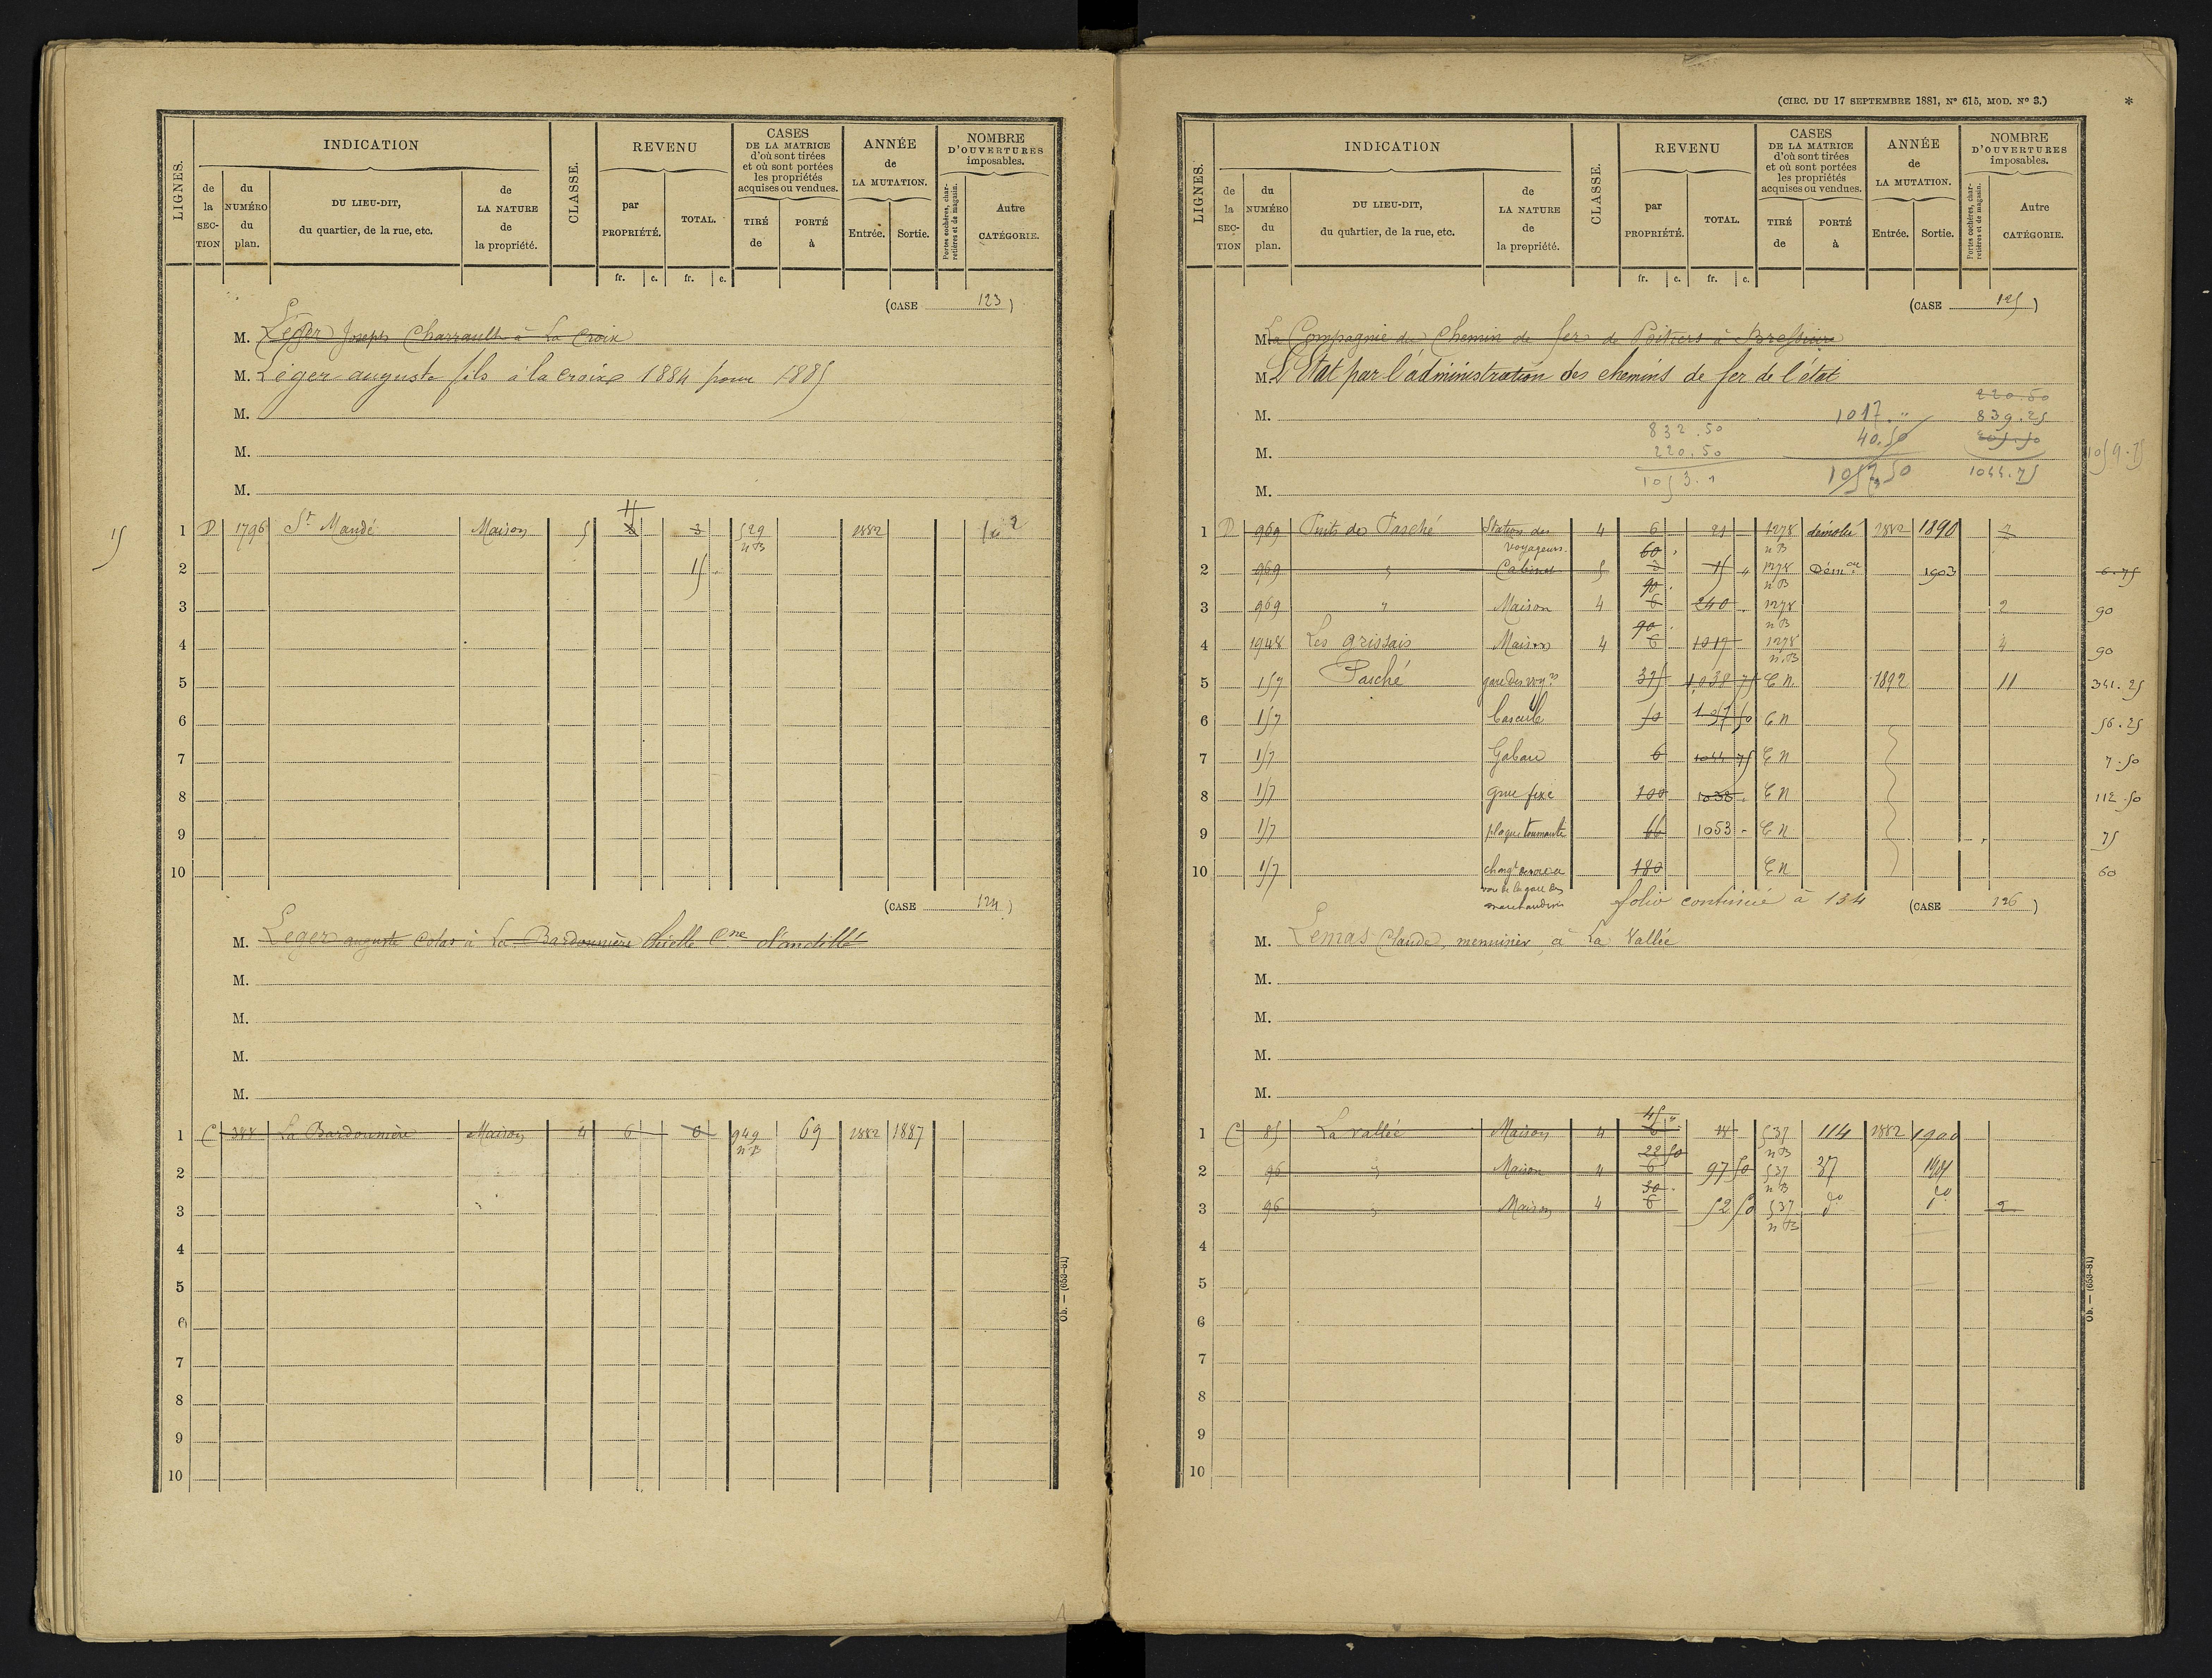 LIGNES.
INDICATION
de la SECTION
du NUMÉRO du plan.
DU LIEU-DIT, du quartier, de la rue, etc.
de LA NATURE de la propriété.
CLASSE.
REVENU
par PROPRIÉTÉ.
TOTAL.
fr. c. fr. c.
CASES DE LA MATRICE d'où sont tirées et où sont portées les propriétés acquises ou vendues.
TIRÉ de
PORTÉ à
ANNÉE de LA MUTATION.
Entrée. Sortie.
NOMBRE D'OUVERTURES imposables.
Portes cochères, charretières et de magasin.
Autre CATÉGORIE.
(CASE 123)
M. Léger Joseph Charrault à La Croix
M. Léger auguste fils à la croix 1884 pour 1885
M.
M.
M.
15
1 D 1796 St Mandé Maison 5 3 529 nB 1882 2
2 15
3
4
5
6
7
8
9
10
(CASE 124)
M. Leger auguste Colas à La Bardounière Cne d'andillé
M.
M.
M.
M.
1 C 388 La Bardounière Maison 4 6 6 949 nB 69 1882 1887
2
3
4
5
6
7
8
9
10
Ob. — (653-81)
(CIRC. DU 17 SEPTEMBRE 1881, N° 615, MOD. N° 3.)
*
LIGNES.
INDICATION
de la SECTION
du NUMÉRO du plan.
DU LIEU-DIT, du quartier, de la rue, etc.
de LA NATURE de la propriété.
CLASSE.
REVENU
par PROPRIÉTÉ.
TOTAL.
fr. c. fr. c.
CASES DE LA MATRICE d'où sont tirées et où sont portées les propriétés acquises ou vendues.
TIRÉ de
PORTÉ à
ANNÉE de LA MUTATION.
Entrée. Sortie.
NOMBRE D'OUVERTURES imposables.
Portes cochères, charretières et de magasin.
Autre CATÉGORIE.
(CASE 125)
M. La Compagnie du Chemin de fer de Poitiers à Bressuire
M. L'Etat par l'administration des chemins de fer de l'état
220.50
M. 1017 " 839.25
832.50 40.50 205.50
M. 220.50 1059.75
1053.1 1057.50 1044.75
M.
1 D 969 Puits de Pasché Station des voyageurs 4 6 21 1278 nB démolié 1882 1890
60
2 969 " Cabinet 5 3 15 1278 nB Démon 1903 6.75
90
3 969 " Maison 4 6 240 1278 nB 2 90
90
4 1948 Les grissais Maison 4 6 1017 1278 n.B 4 90
5 157 Pasché gare des voyrs 375 1,038 75 C N. 1892 11 341.25
6 157 bascule 50 1057 50 C N 56.25
7 157 Gabari 6 1044 75 C N 7.50
8 157 grue fixe 100 1038 C N 112.50
9 157 plaque tournante 66 1053 - C N 75
10 157 180 C N 60
voie de la gare des marchandises
folio continué à 134
(CASE 126)
M. Lemas Claude, menuisier à La Vallée
M.
M.
M.
M.
45
1 C 85 La vallée Maison 4 6 18 537 nB 114 1882 1900
22 50
2 96 " Maison 4 6 97 50 537 nB 37 1901
30
3 96 " Maison 4 6 52 50 537 nB do do 2
4
5
6
7
8
9
10
Ob. — (653-81)